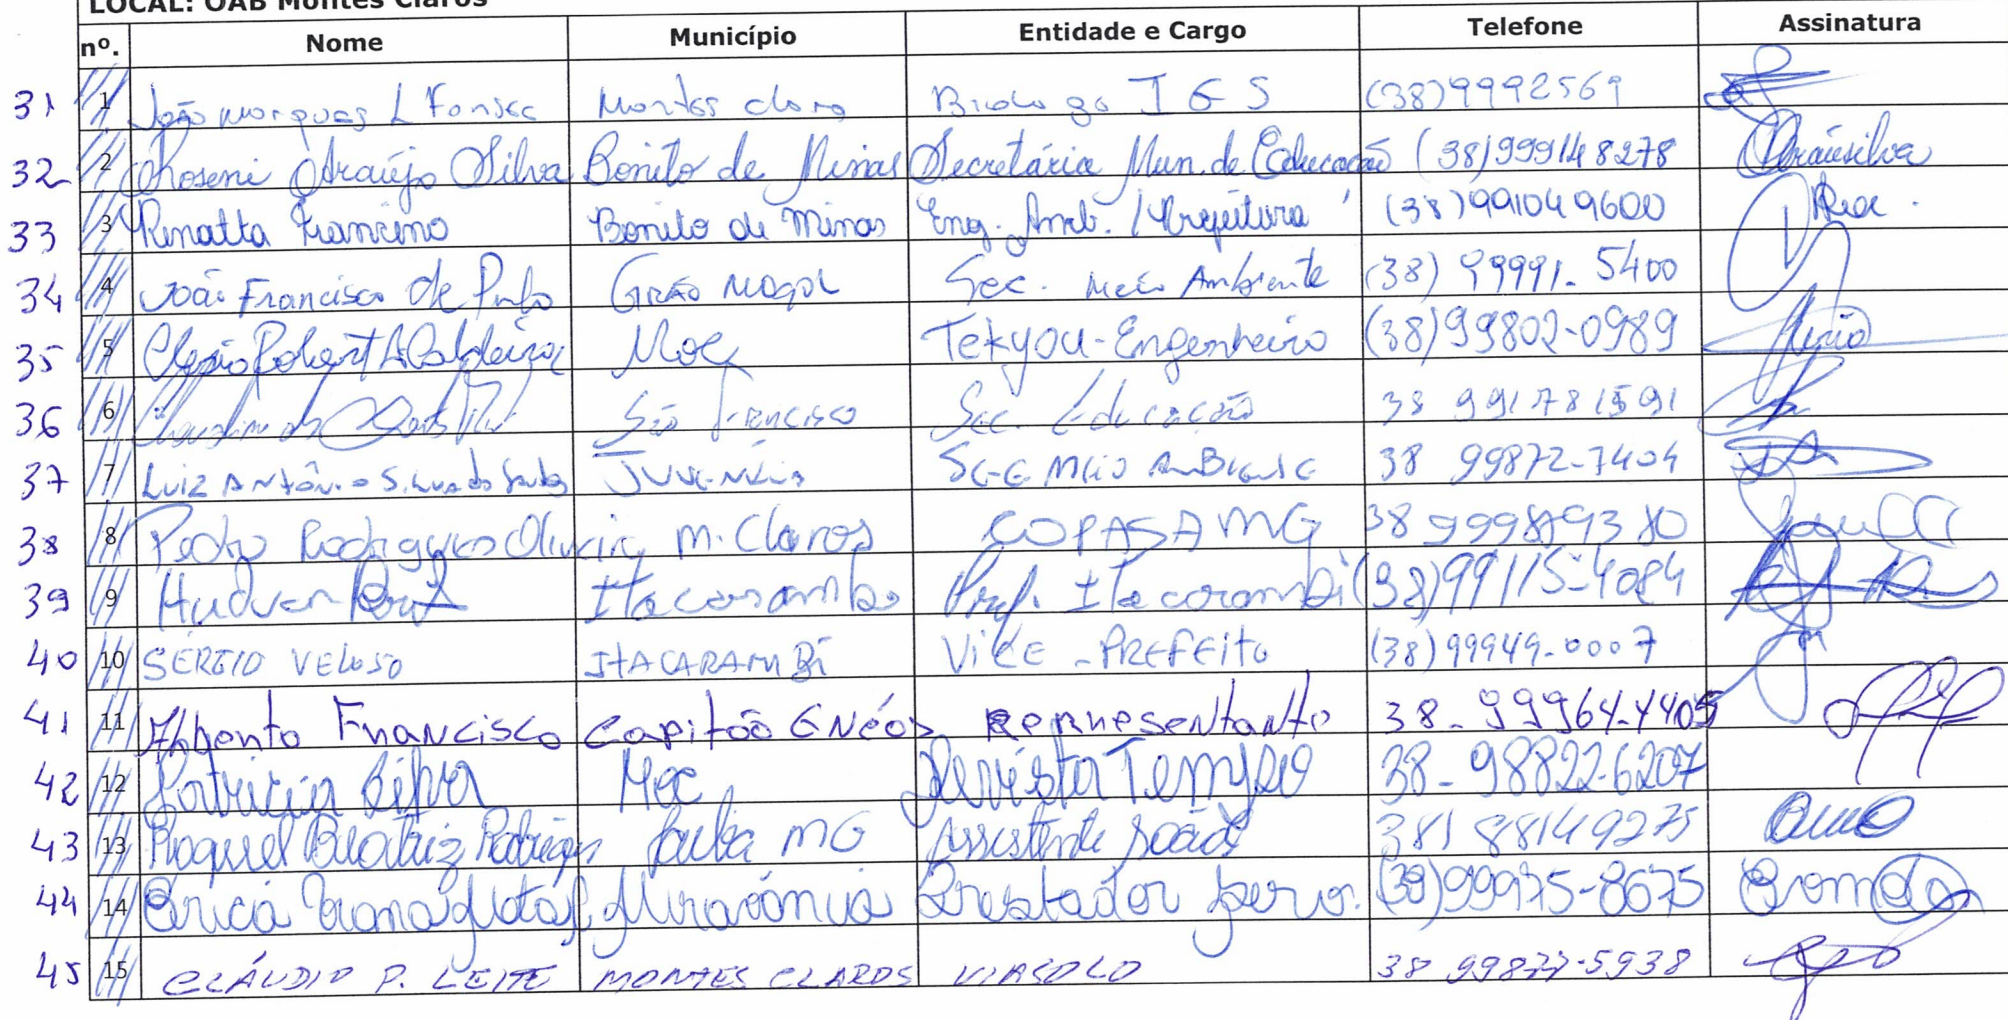 LOCAL: OAB Montes Claros
nº. Nome Município Entidade e Cargo Telefone Assinatura
31 1 João Marques L Fonsec Montes claro Biologo IGS (38)9992569
32 2 Roseni Araújo Silva Bonito de Minas Secretária Mun. de Educação (38)999148278
33 3 Renatta Bonito de Minas Eng. Amb. / Prefeitura (38)991049600
34 4 João Francisco de Grão Mogol Sec. Meio Ambiente (38) 99991-5400
35 5 Robert A Caldeira Moc Tekyou-Engenheiro (38)99802-0989
36 6 São Francisco Sec. Educação 38 991781591
37 7 Luiz Antônio Silva do Santos Juvenília Meio Ambiente 38 99872-7404
38 8 Pedro Rodrigues Oliveira M. Claros COPASA MG 38 999889380
39 9 Itacarambi Pref. Itacarambi (38)99115-4084
40 10 SERGIO VELOSO ITACARAMBI VICE-PREFEITO (38)99949-0007
41 11 Francisco Capitão Enéas Representante 38-99964-4405
42 12 Patricia Silva Moc Revista Tempo 38-98822-6207
43 13 Raquel Beatriz Rodrigues MG Assistente Social 38) 88149275
44 14 Erica Miravânia Prestador serv. (38)99975-8675
45 15 CLÁUDIO P. LEITE MONTES CLAROS VIASOLO 38 99877-5938